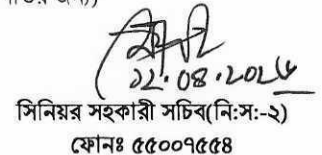 ১২.০৪.২০২৬
সিনিয়র সহকারী সচিব(নি:স:-২)
ফোনঃ ৫৫০০৭৫৫৪